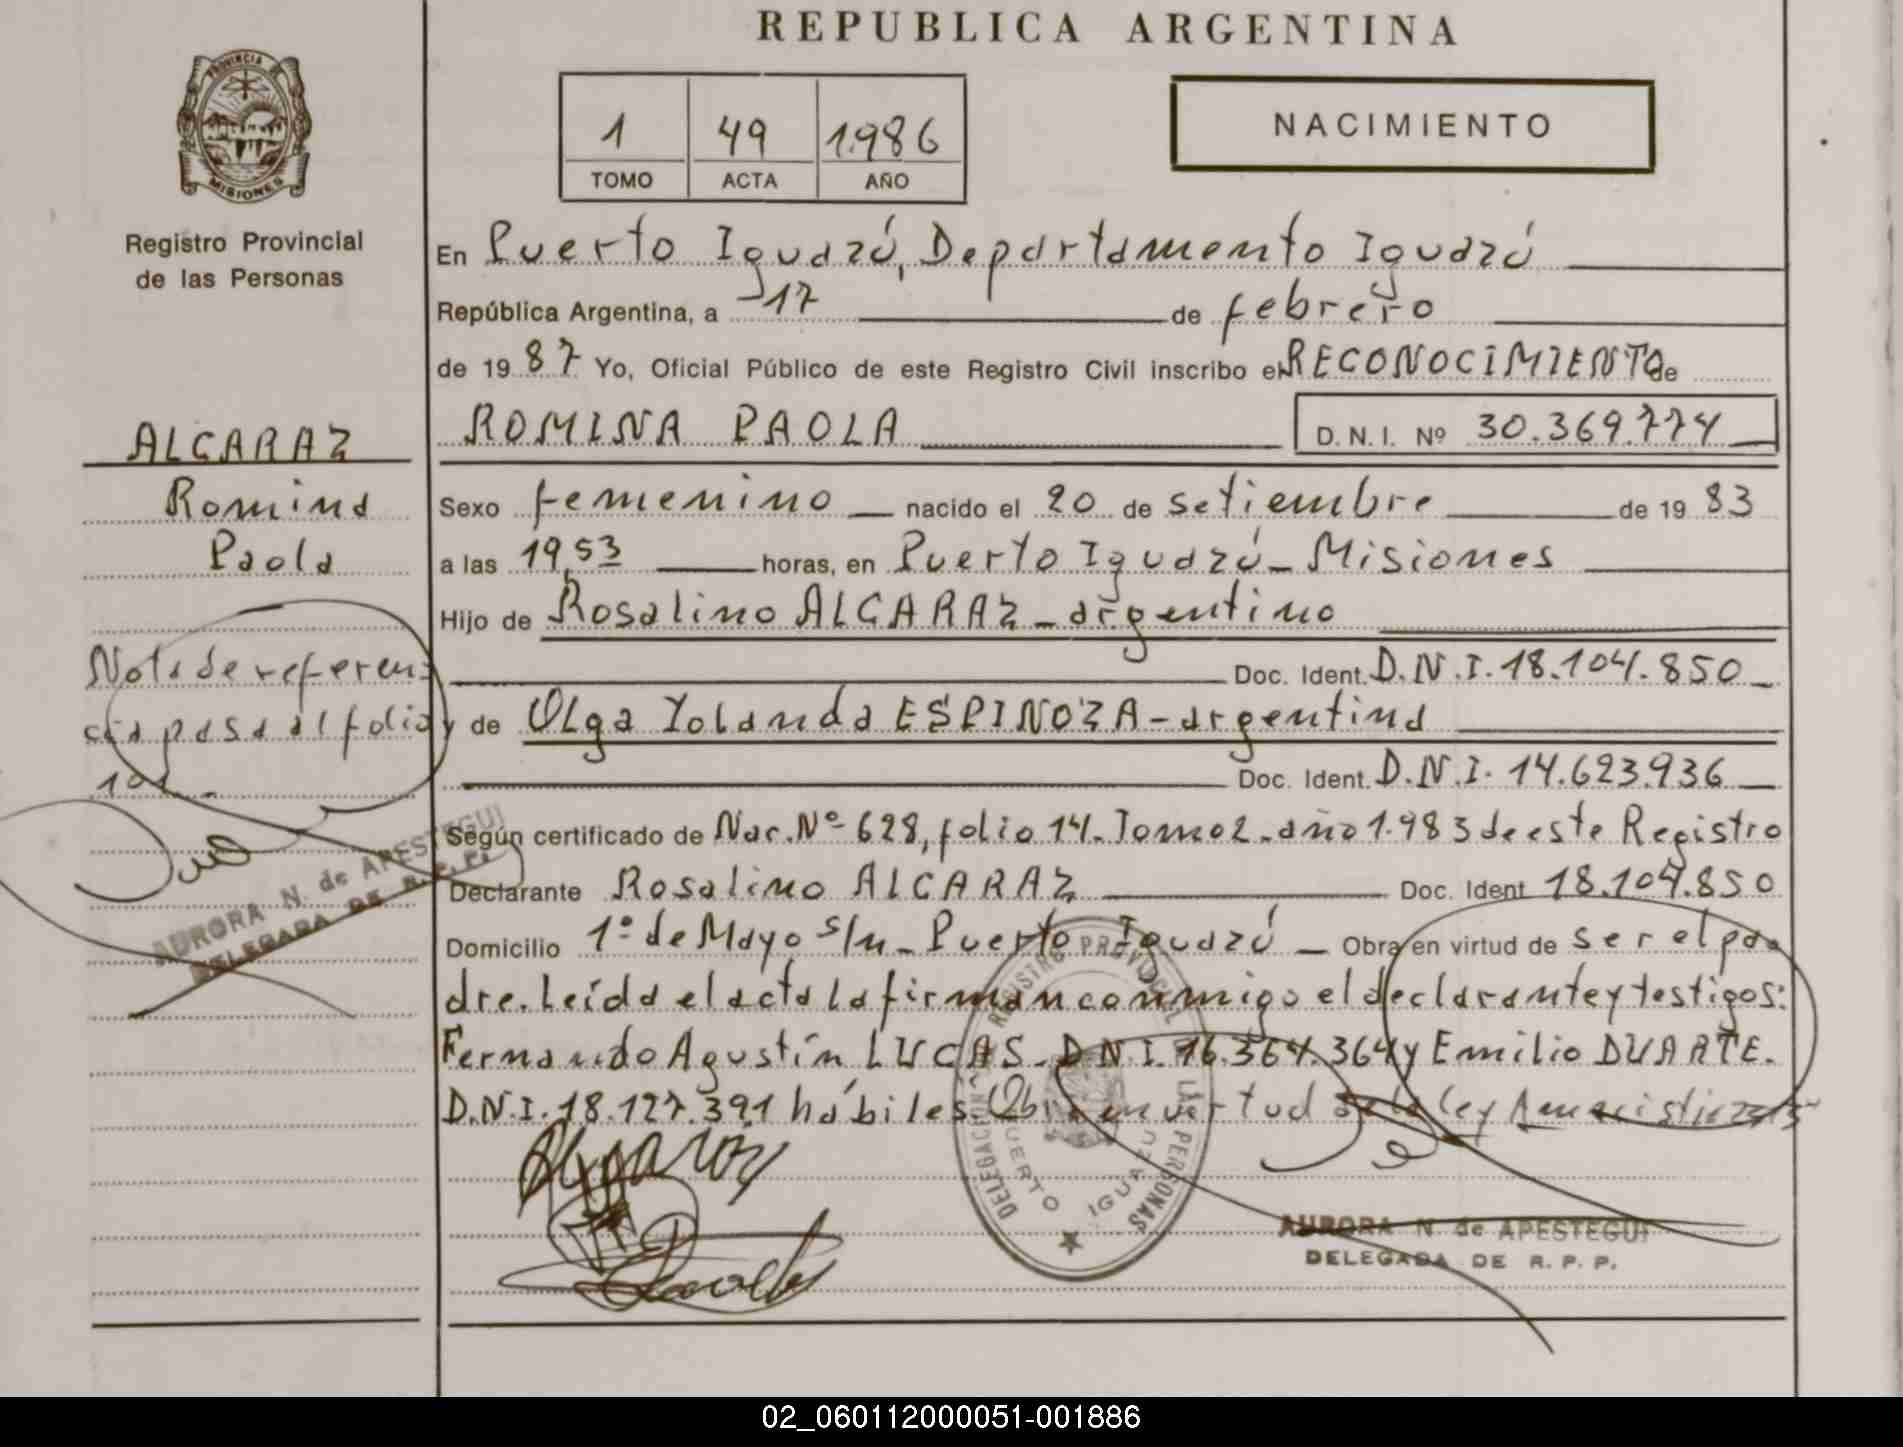 REPUBLICA ARGENTINA
PROVINCIA DE
MISIONES
Registro Provincial
de las Personas
1 49 1.986
TOMO ACTA AÑO
NACIMIENTO
En Puerto Iguazú, Departamento Iguazú
República Argentina, a 17 de febrero
de 1987 Yo, Oficial Público de este Registro Civil inscribo el RECONOCIMIENTO de
ROMINA PAOLA D.N.I. Nº 30.369.774
ALCARAZ
Romina
Paola
Sexo femenino nacido el 20 de setiembre de 1983
a las 19,53 horas, en Puerto Iguazú - Misiones
Hijo de Rosalino ALCARAZ - argentino
Doc. Ident. D.N.I. 18.104.850
y de Olga Yolanda ESPINOZA - argentina
Doc. Ident. D.N.I. 14.623.936
Nota de referen-
cia pasa al folio
101.-
Según certificado de Nac. Nº 628, folio 14. Tomo 2. año 1.983 de este Registro
Declarante Rosalino ALCARAZ Doc. Ident 18.104.850
Domicilio 1º de Mayo s/n - Puerto Iguazú - Obra en virtud de ser el pa-
dre. Leída el acta la firman conmigo el declarante y testigos:
Fernando Agustín LUCAS. D.N.I. 16.364.364 y Emilio DUARTE.
D.N.I. 18.127.391 hábiles. Obra en virtud de la ley
AURORA N. de APESTEGUI
DELEGADA DE R. P. P.
REGISTRO PROVINCIAL DE LAS PERSONAS
DELEGACION
PUERTO IGUAZU
AURORA N de APESTEGUI
DELEGADA DE R. P. P.
02_060112000051-001886